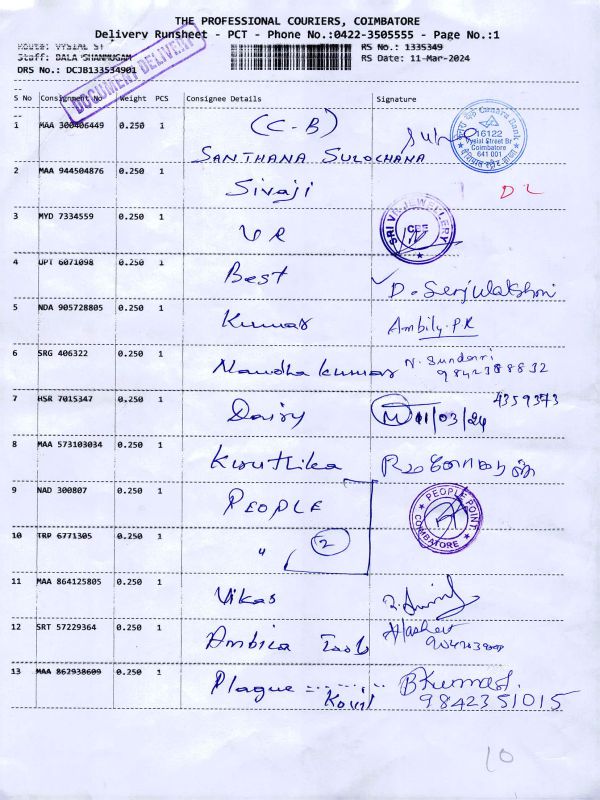 THE PROFESSIONAL COURIERS, COIMBATORE
Delivery Runsheet - PCT - Phone No.:0422-3505555 - Page No.:1
Route: VYSIAL ST
RS No.: 1335349
Staff: BALA SHANMUGAM
RS Date: 11-Mar-2024
DRS No.: DCJB133534901
DOCUMENT DELIVERY
S No Consignment No Weight PCS Consignee Details Signature
1 MAA 300406449 0.250 1 (C-B)
SANTHANA SULOCHANA
Canara Bank
16122
Vysial Street Br
Coimbatore
641 001
2 MAA 944504876 0.250 1 Sivaji
3 MYD 7334559 0.250 1 VR
SRI VR JEWELLERY
CBE
4 UPT 6071098 0.250 1 Best
5 NDA 905728805 0.250 1 Kumar Ambily.PR
6 SRG 406322 0.250 1 Nandha kumar N. Sundari
9842388832
7 HSR 7015347 0.250 1 Dairy 11/03/24
8 MAA 573103034 0.250 1 Kiruthika
9 NAD 300807 0.250 1 PEOPLE
PEOPLE POINT
COIMBATORE
10 TRP 6771305 0.250 1 " 2
11 MAA 864125805 0.250 1 Vikas
12 SRT 57229364 0.250 1 Ambica
13 MAA 862938609 0.250 1 Plague Kovil
BKumar.
9842351015
10